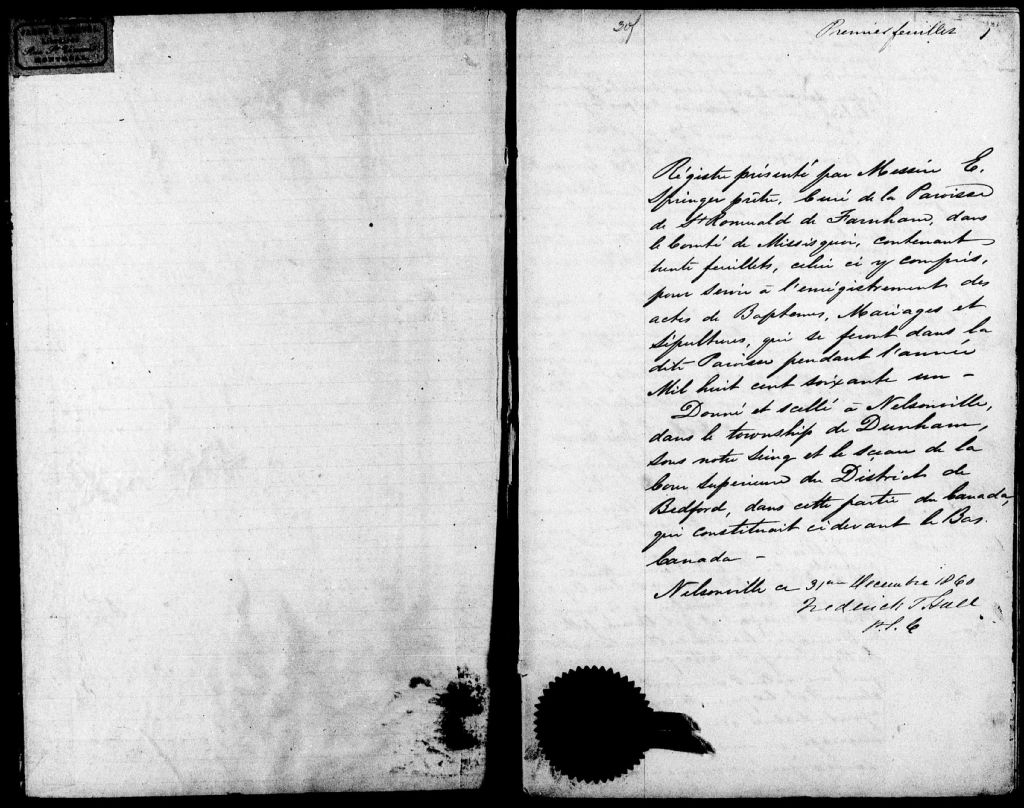 MONTREAL
30f
Premier feuillet 1
Régistre présenté par Messire E.
Springer prêtre, Curé de la Paroisse
de St Romuald de Farnham, dans
le Comté de Missisquoi, contenant
trente feuillets, celui ci y compris,
pour servir à l'enrégistrement des
actes de Baptemes, Mariages et
Sépultures, qui se feront dans la
dite Paroisse pendant l'année
Mil huit cent soixante un -
Donné et scellé à Nelsonville,
dans le township de Dunham,
sous notre seing et le sceau de la
Cour Superieure du District de
Bedford, dans cette partie du Canada,
qui constituait cidevant le Bas
Canada -
Nelsonville ce 31me Decembre 1860
Frederick T. Hall
P.S.C